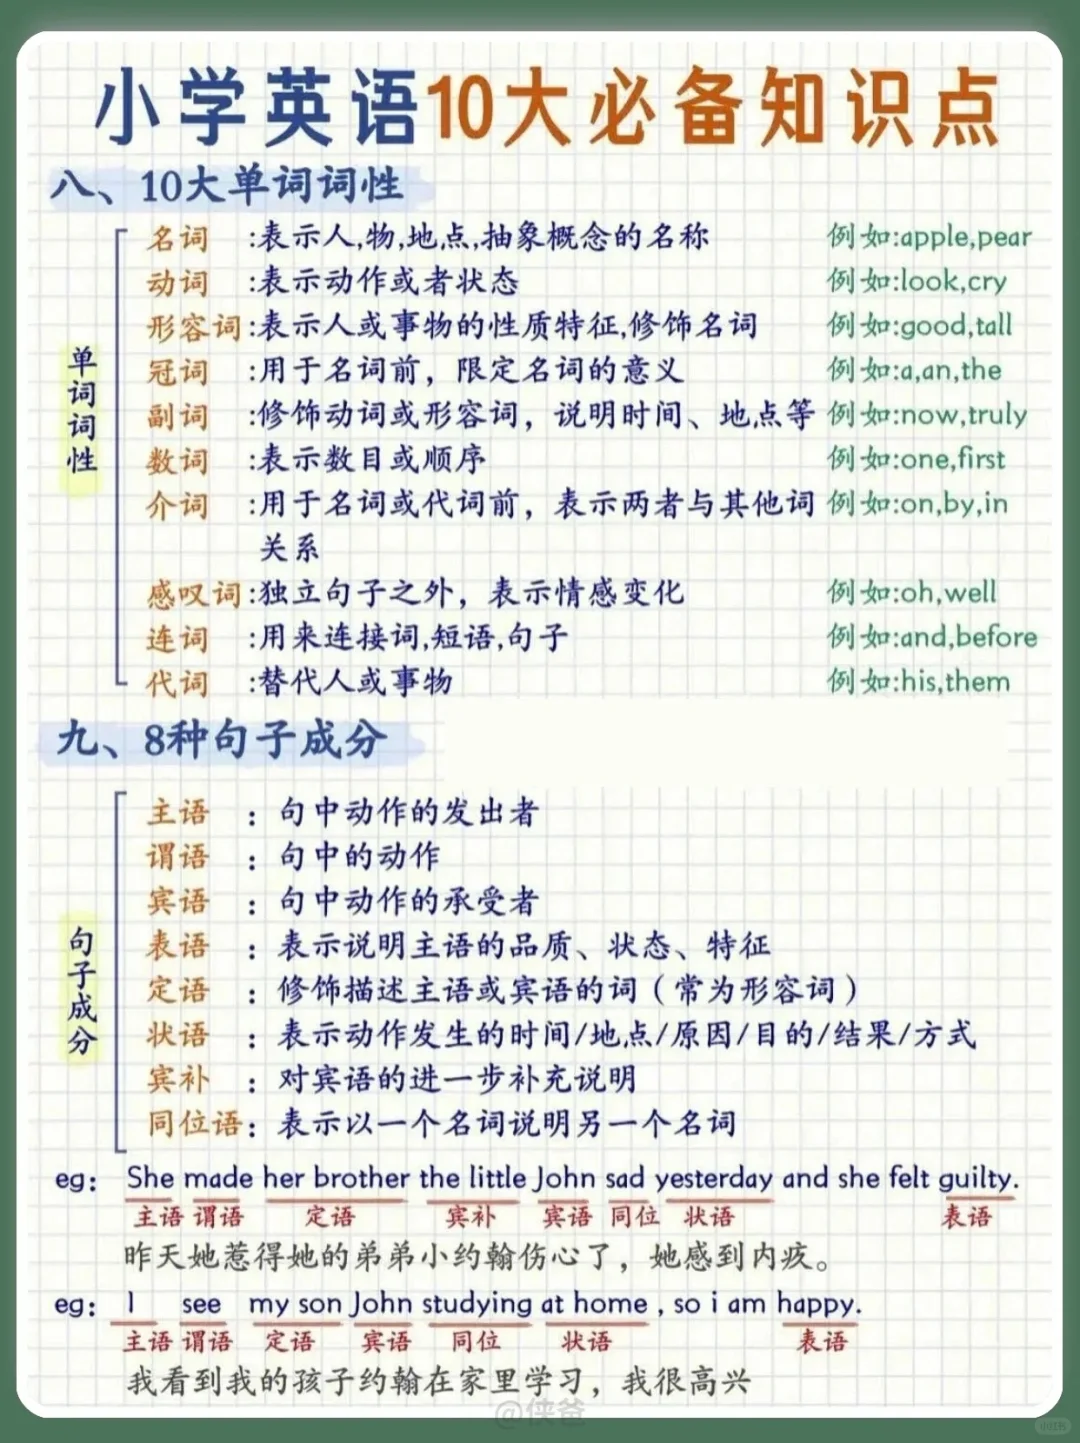 小学英语10大必备知识点
八、10大单词词性
单词词性
名词 :表示人,物,地点,抽象概念的名称 例如:apple,pear
动词 :表示动作或者状态 例如:look,cry
形容词:表示人或事物的性质特征,修饰名词 例如:good,tall
冠词 :用于名词前，限定名词的意义 例如:a,an,the
副词 :修饰动词或形容词，说明时间、地点等 例如:now,truly
数词 :表示数目或顺序 例如:one,first
介词 :用于名词或代词前，表示两者与其他词 例如:on,by,in
关系
感叹词:独立句子之外，表示情感变化 例如:oh,well
连词 :用来连接词,短语,句子 例如:and,before
代词 :替代人或事物 例如:his,them
九、8种句子成分
句子成分
主语 ：句中动作的发出者
谓语 ：句中的动作
宾语 ：句中动作的承受者
表语 ：表示说明主语的品质、状态、特征
定语 ：修饰描述主语或宾语的词（常为形容词）
状语 ：表示动作发生的时间/地点/原因/目的/结果/方式
宾补 ：对宾语的进一步补充说明
同位语：表示以一个名词说明另一个名词
eg： She made her brother the little John sad yesterday and she felt guilty.
主语 谓语 定语 宾补 宾语 同位 状语 表语
昨天她惹得她的弟弟小约翰伤心了，她感到内疚。
eg： I see my son John studying at home , so i am happy.
主语 谓语 定语 宾语 同位 状语 表语
我看到我的孩子约翰在家里学习，我很高兴
@侠爸
小红书